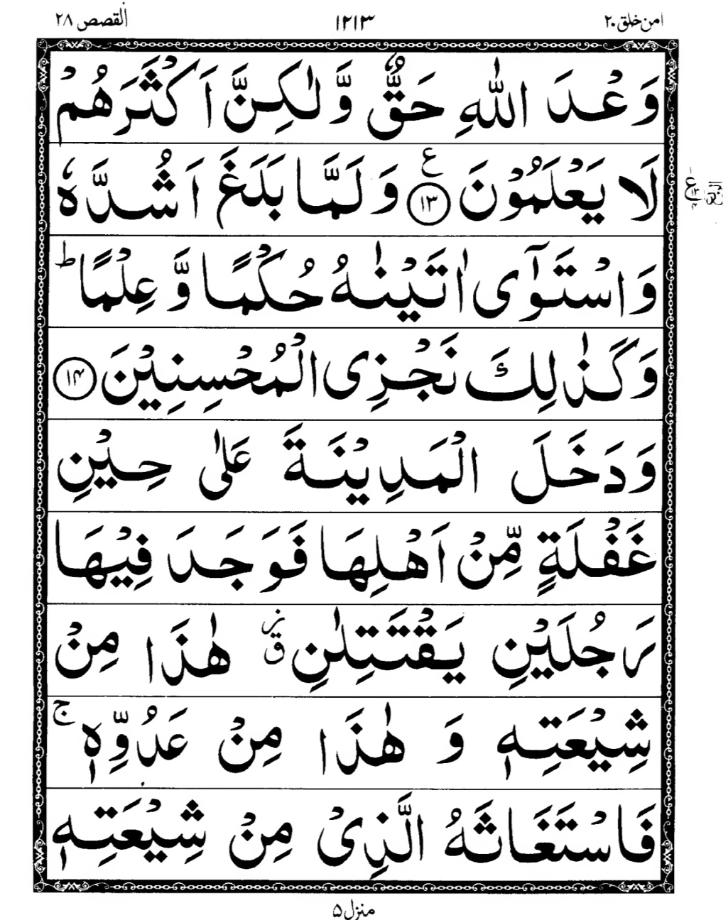 امن خلق ۲۰ ۱۲۱۳ القصص ۲۸
وَعْدَ اللّٰهِ حَقٌّ وَّلٰكِنَّ اَكْثَرَهُمْ
لَا يَعْلَمُوْنَ ﴿۱۳﴾ ع وَلَمَّا بَلَغَ اَشُدَّهٗ
وَاسْتَوٰٓى اٰتَيْنٰهُ حُكْمًا وَّعِلْمًا ؕ
وَكَذٰلِكَ نَجْزِى الْمُحْسِنِيْنَ ﴿۱۴﴾
وَدَخَلَ الْمَدِيْنَةَ عَلٰى حِيْنِ
غَفْلَةٍ مِّنْ اَهْلِهَا فَوَجَدَ فِيْهَا
رَجُلَيْنِ يَقْتَتِلٰنِ ق ز هٰذَا مِنْ
شِيْعَتِهٖ وَ هٰذَا مِنْ عَدُوِّهٖ ۚ
فَاسْتَغَاثَهُ الَّذِىْ مِنْ شِيْعَتِهٖ
منزل ۵